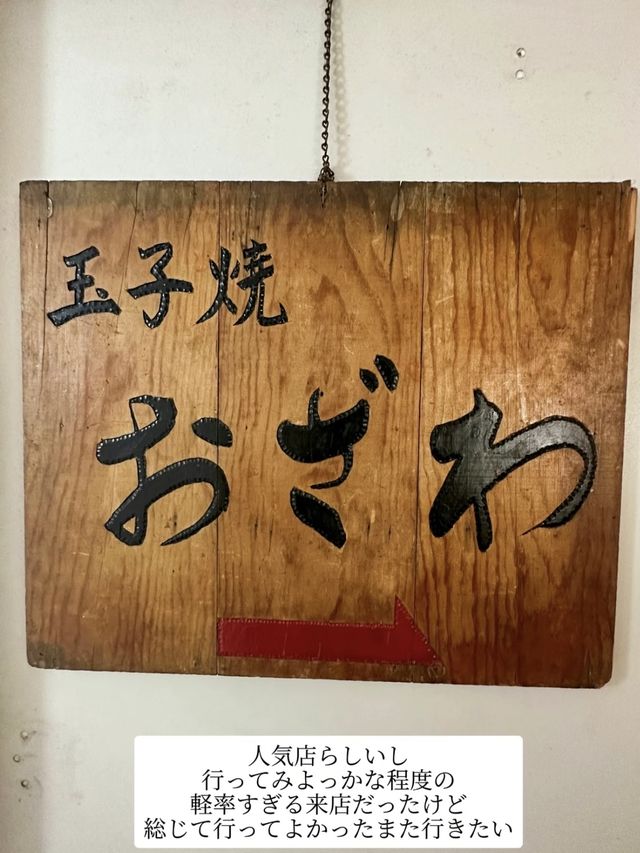 玉子焼
おざわ
人気店らしいし
行ってみよっかな程度の
軽率すぎる来店だったけど
総じて行ってよかったまた行きたい